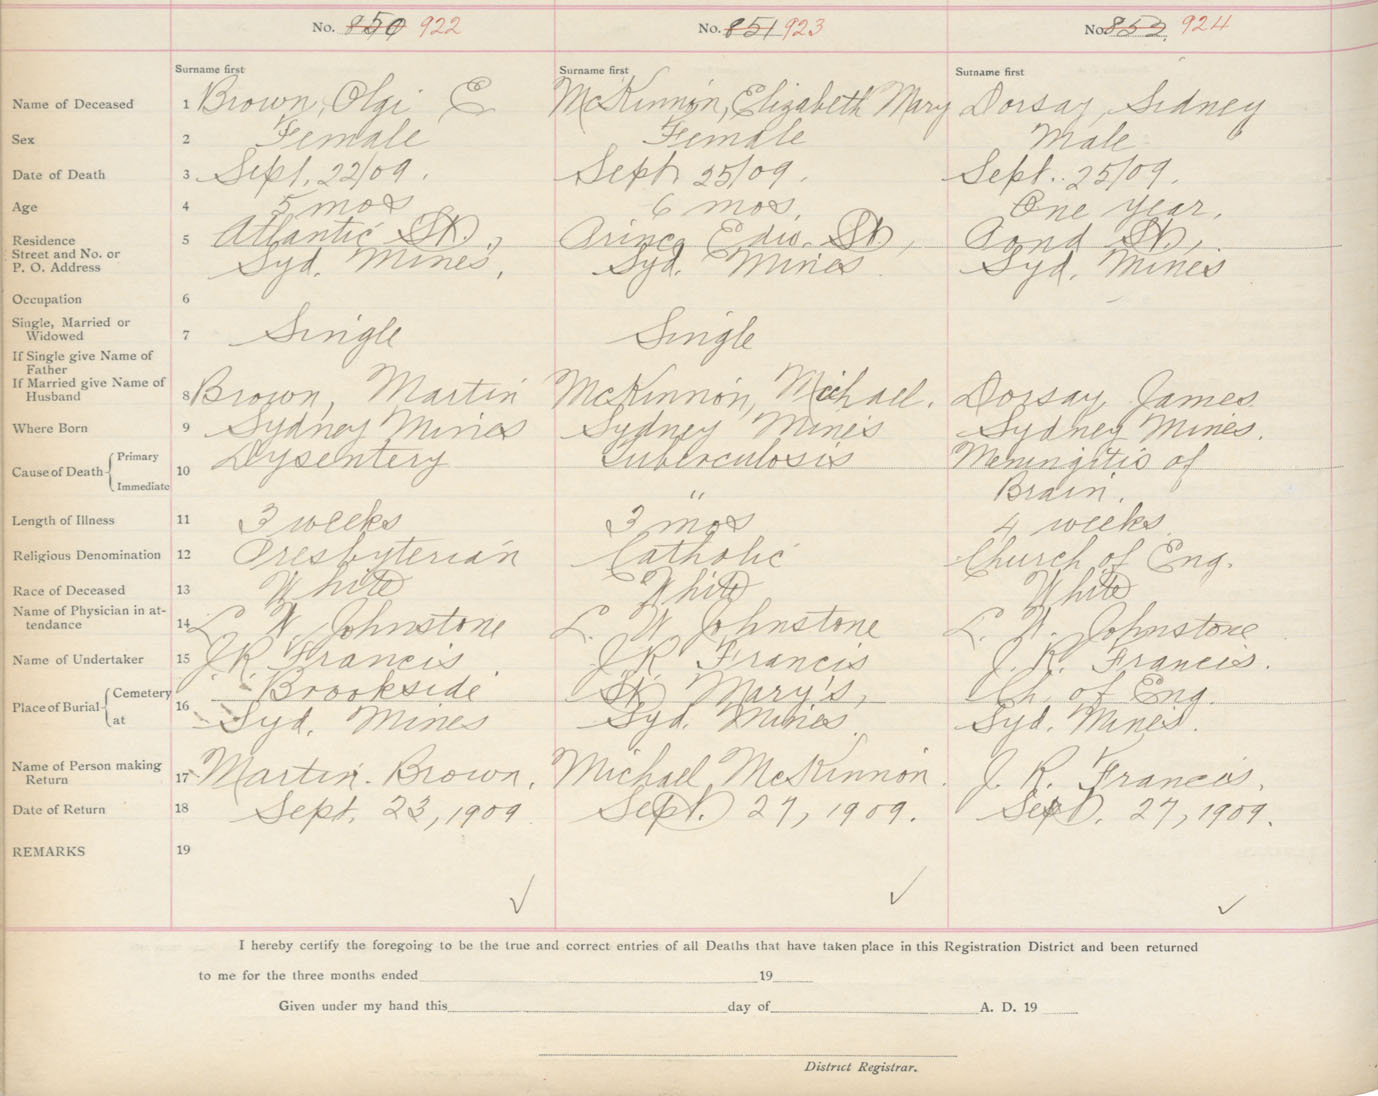 No. 850 922
No. 851 923
No. 852 924
Surname first
Surname first
Surname first
Name of Deceased 1 Brown, Olgi E McKinnon, Elizabeth Mary Dorsay, Sidney
Sex 2 Female Female Male
Date of Death 3 Sept. 22/09. Sept 25/09. Sept. 25/09.
Age 4 5 mos 6 mos. One year.
Residence 5 Atlantic St., Prince Edw. St., Pond St.,
Street and No. or
P. O. Address Syd. Mines, Syd. Mines Syd. Mines
Occupation 6
Single, Married or
Widowed 7 Single Single
If Single give Name of
Father
If Married give Name of
Husband 8 Brown, Martin McKinnon, Michael. Dorsay, James
Where Born 9 Sydney Mines Sydney Mines Sydney Mines.
Cause of Death Primary Dysentery Tuberculosis Meningitis of
10
Immediate " Brain.
Length of Illness 11 3 weeks 3 mos 4 weeks
Religious Denomination 12 Presbyterian Catholic Church of Eng.
Race of Deceased 13 White White White
Name of Physician in at-
tendance 14 L. W. Johnstone L. W. Johnstone L. W. Johnstone
Name of Undertaker 15 J.R. Francis J R Francis J. R. Francis.
Place of Burial Cemetery Brookside St Mary's, Ch. of Eng.
16
at Syd. Mines Syd. Mines. Syd. Mines.
Name of Person making
Return 17 Martin Brown. Michael McKinnon. J. R. Francis.
Date of Return 18 Sept. 23, 1909 Sept. 27, 1909. Sept. 27, 1909.
REMARKS 19
I hereby certify the foregoing to be the true and correct entries of all Deaths that have taken place in this Registration District and been returned
to me for the three months ended 19
Given under my hand this day of A. D. 19
District Registrar.